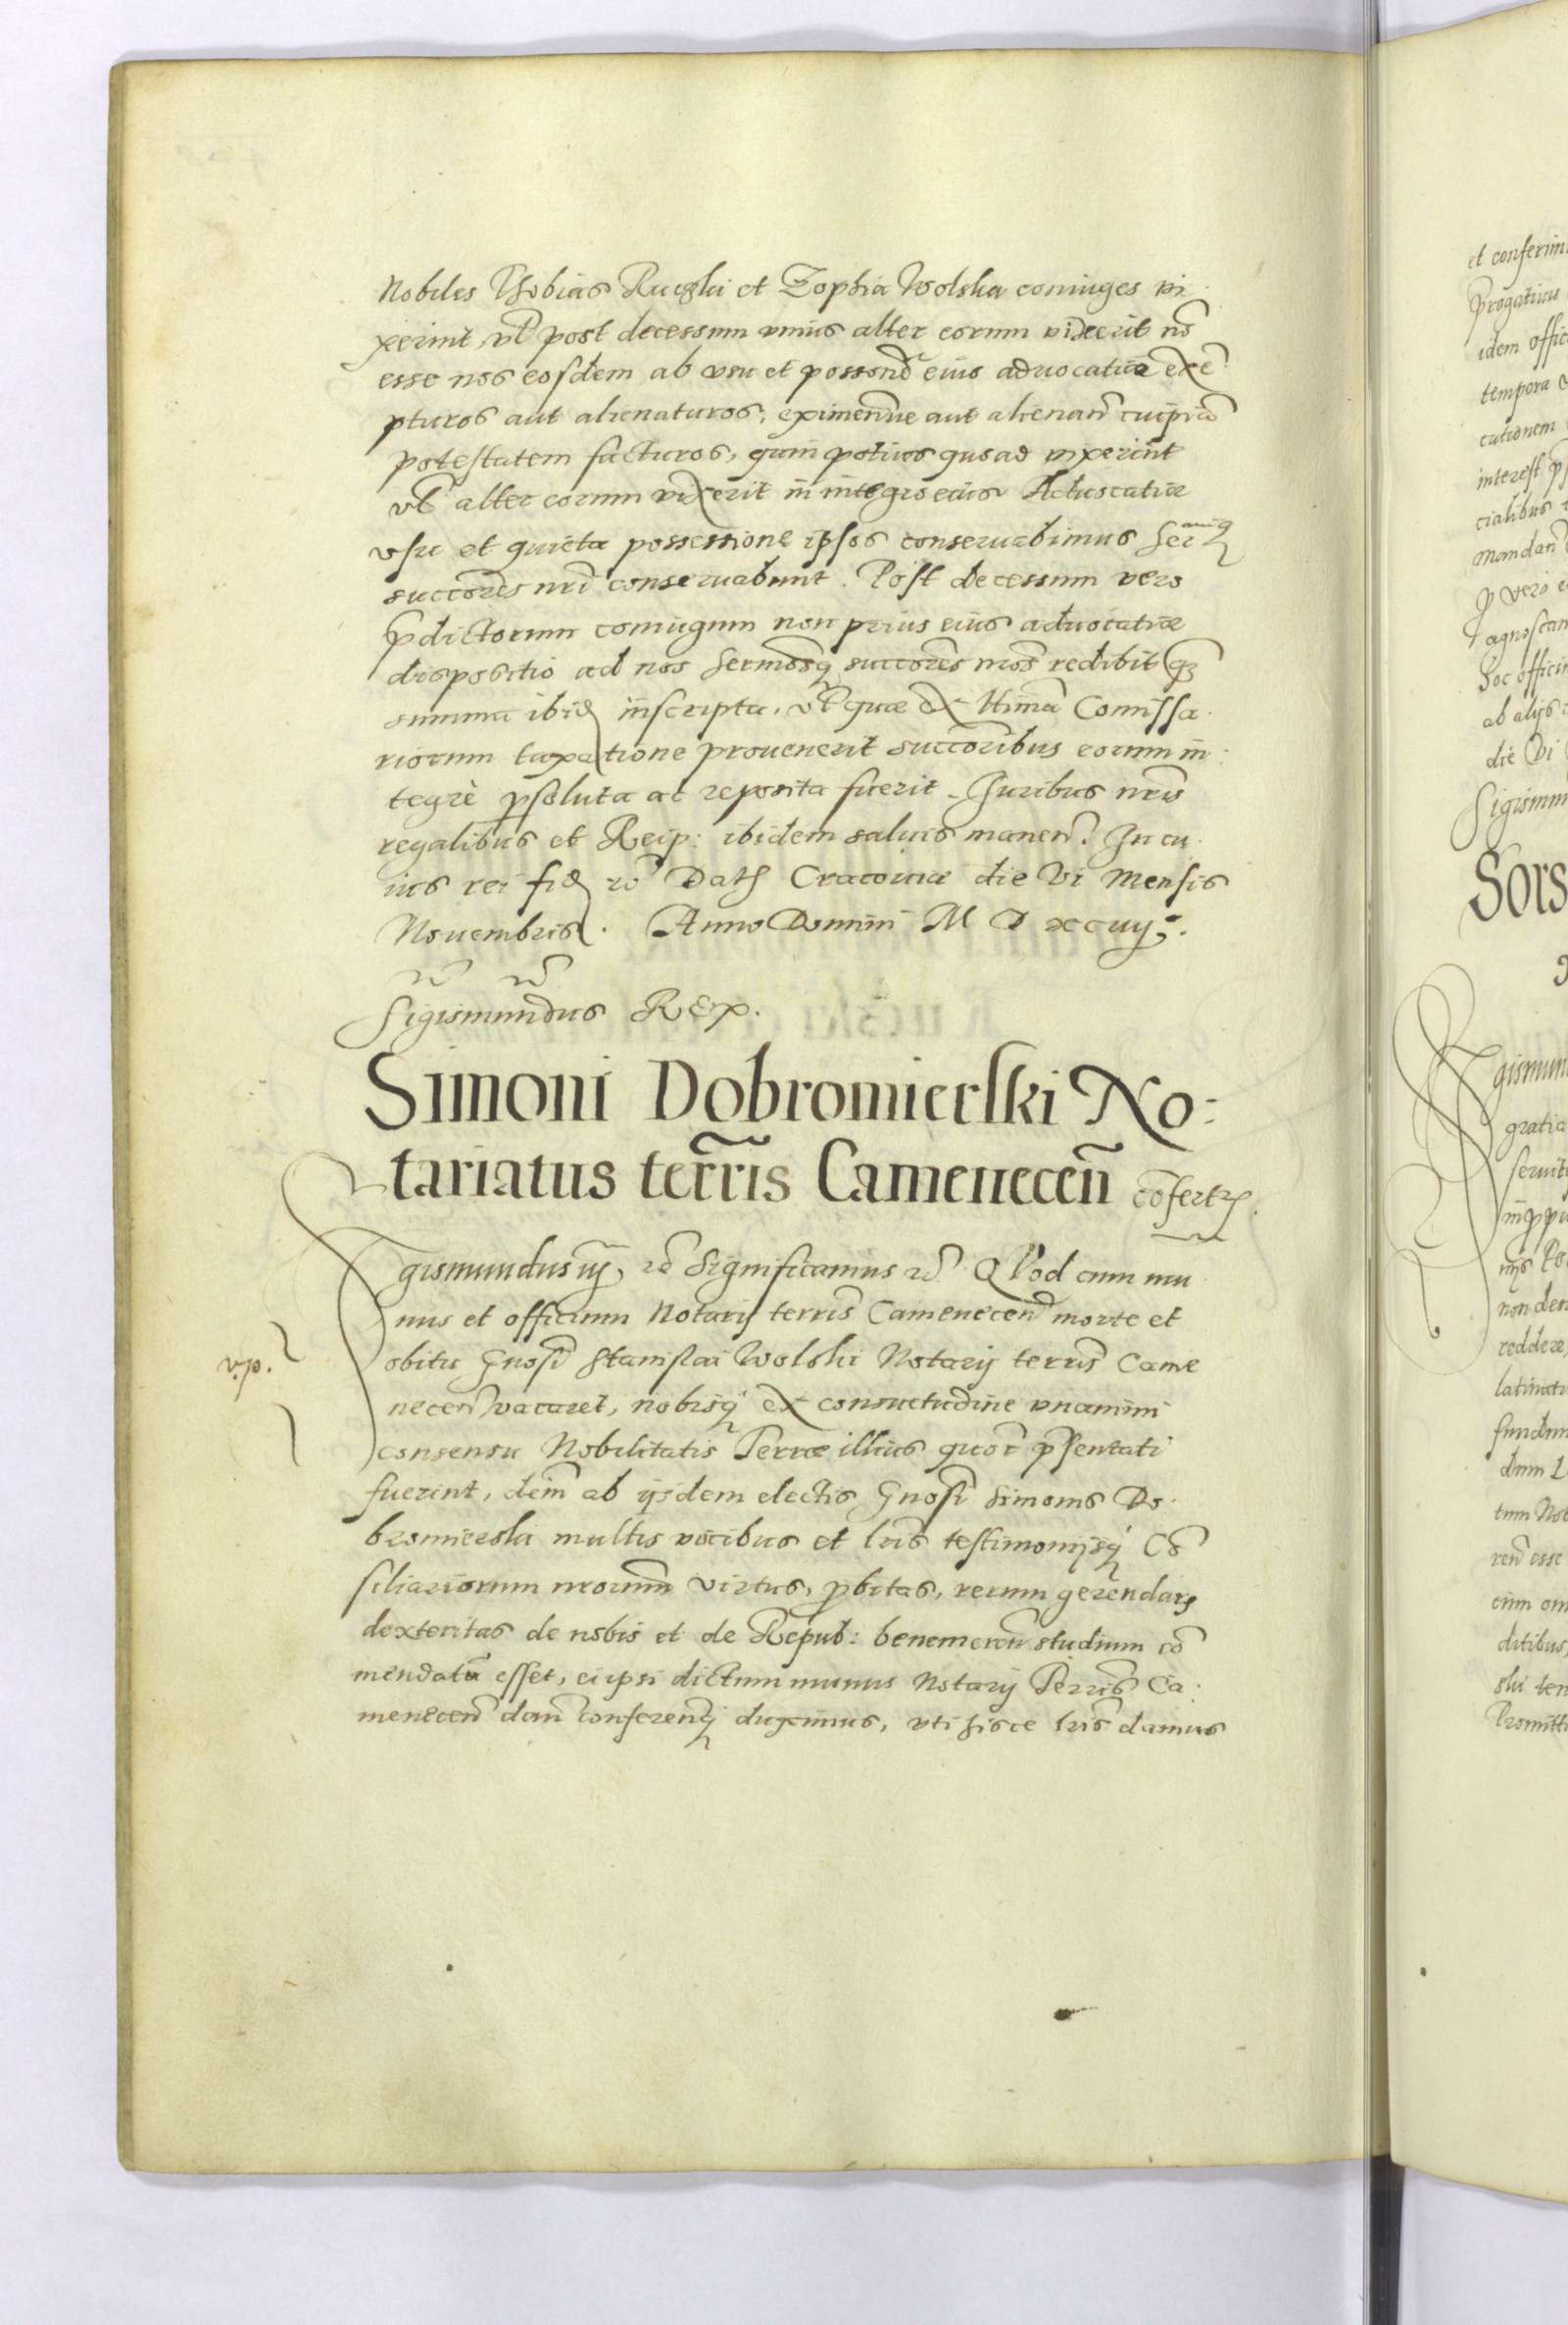 Nobiles Thobias Rucski et Zophia Wolska coniuges vi
xerint, vel post decessum vnius alter eorum vixerit nō
esse nos eosdem ab vsu et possone eius aduocatiæ exē
pturos aut alienaturos, eximendiue aut alienan cuipiā
potestatem facturos, quin potius quoad vixerint
vel alter eorum vixerit in integro eius Aduocatiæ
vsu et quieta possessione ipsos conseruabimus Ser
succores nri conseruabunt. Post decessum vero
prdictorum coniugum non prius eius aduocatiæ
dispositio ad nos sermosq succores nros redibit
summa ibid inscripta, vel quæ ex ltima Comissa
riorum taxatione prouenerit succoribus eorum in
tegrè psoluta ac reposita fuerit. Juribus nris
regalibus et Reip: ibidem saluis manen. In cu
ius rei fid Dat Cracouiæ die VI Mensis
Nouembris. Anno Domini M D xcvij.
Sigismundus Rex.
Simoni Dobromierski No:
tariatus terris Camenecen cōfertr.
gismundus iij, Significamus QVod cum mu
nus et officium Notarij terris Camenecen morte et
v.p.
obitu Gnosi Stanislai Wolski Notarij terris Came
necen vacaret, nobisq ex consuetudine vnanimi
consensu Nobilitatis Terræ illius quor psentati
fuerint, dem ab ijsdem electis Gnosi Simonis Do
bromierski multis vocibus et lris testimonijsq Cō
siliariorum nrorum virtus, pbitas, rerum gerendar
dexteritas de nobis et de Repub: benemeren studium cō
mendatū esset, ei ipsi dictum munus Notarij Terris Ca
menecen dan conferenq duximus, vti hisce lris damus
et conferim
idem offic
tempora
cutionem
interest
cialibus
mandan
vero
agnoscan
hoc offici
ab alijs
die VI
Sigismun
Sors
gismun
gratia
non den
reddere,
fundum
dum
tum Not
ren esse
cum om
ditibus,
ski ter
Promitti